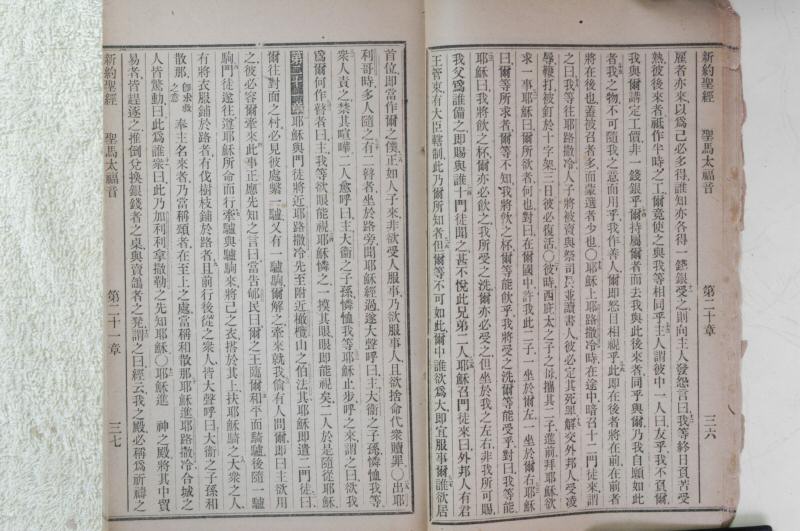 新約聖經 聖馬太福音 第二十章 三六
雇者亦來以爲己必多得誰知亦各得一錢銀受之則向主人發怨言曰我等終日負苦受
熱彼後來者祗作半時之工爾竟使之與我等相同乎主人謂彼中一人曰友乎我不負爾
我與爾講定工價非一錢銀乎爾持屬爾者而去我與此後來者同乎與爾乃我自願如此
者我之物不可隨我之意而用乎我作善人爾即怒目相視乎此即在後者將在前在前者
將在後也蓋被召者多而蒙選者少也〇耶穌上耶路撒冷時在途中暗召十二門徒來謂
之曰我等往耶路撒冷人子將被賣與祭司長並讀書人彼必定其死罪解交外邦人受凌
辱鞭打被釘於十字架三日彼必復活〇彼時西庇太之子之母攜其二子進前拜耶穌欲
求一事耶穌曰爾所欲者何也對曰在爾國中許我此二子一坐於爾左一坐於爾右耶穌
曰爾等所求者爾等不知我將飲之杯爾等能飲乎我將受之洗爾等能受乎對曰我等能
耶穌曰我將飲之杯爾亦必飲之我所受之洗爾亦必受之但坐於我之左右非我所可賜
我父爲誰備之即賜與誰十門徒聞之甚不悅此兄弟二人耶穌召門徒來曰外邦人有君
王管束有大臣轄制此乃爾所知者但爾等不可如此爾中誰欲爲大即宜服事爾誰欲居
首位即當作爾之僕正如人子來非欲受人服事乃欲服事人且欲捨命代衆贖罪〇出耶
利哥時多人隨之有二瞽者坐於路旁聞耶穌經過遂大聲呼曰主大衞之子孫憐恤我等
衆人責之禁其喧嘩二人愈呼曰主大衞之子孫憐恤我等耶穌止步呼之來謂之曰欲我
爲爾何作瞽者曰主我等欲眼能視耶穌憐之一摸其眼眼即能視矣二人於是隨從耶穌
第二十一章 耶穌與門徒將近耶路撒冷先至附近橄欖山之伯法其耶穌即遣二門徒曰
爾往對面之村必見彼處繫一驢又有一驢駒爾解之牽來就我倘有人問爾即曰主欲用
之彼必容爾牽來此事正應先知之言曰當告郇民曰爾之王臨爾和平而騎驢後隨一驢
駒門徒遂往遵耶穌所命而行牽驢與驢駒來將己之衣搭於其上扶耶穌騎之大衆之人
有將衣服鋪於路者有伐樹枝鋪於路者且前行後從之衆人皆大聲呼曰大衞之子孫和
散那即求救之意奉主名來者乃當稱頌者在至上之處當稱和散那耶穌進耶路撒冷合城之
人皆驚動曰此爲誰衆曰此乃加利利拿撒勒之先知耶穌〇耶穌進 神之殿將其中貿
易者皆趕逐之推倒兌換銀錢者之桌與賣鴿者之凳謂之曰經云我之殿必稱爲祈禱之
新約聖經 聖馬太福音 第二十一章 三七